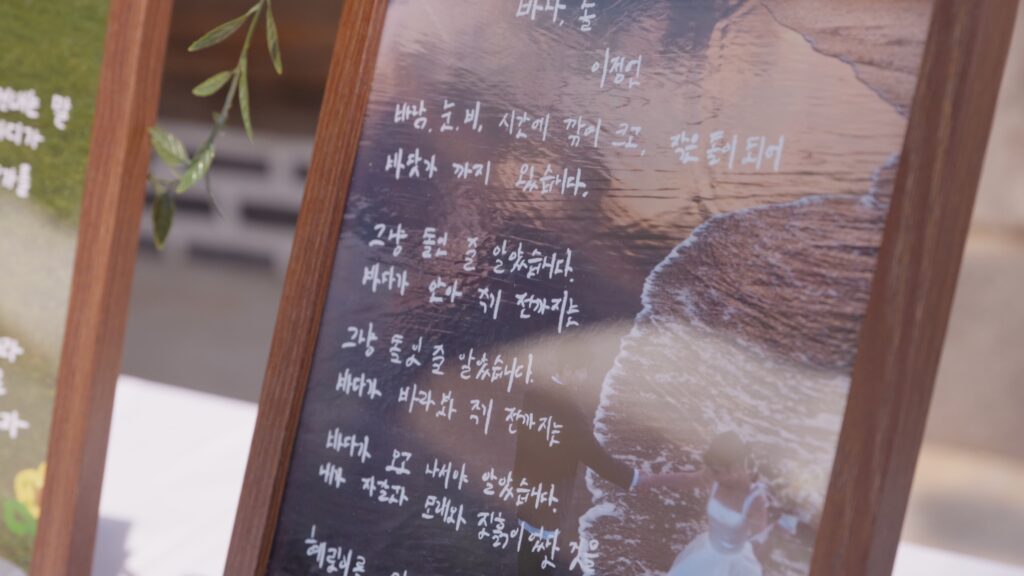 바다, 돌
이정연
바람, 눈, 비, 시간에 깎여 크고, 작은 돌이 되어
바닷가 까지 왔습니다.
그냥 돌인 줄 알았습니다.
바다가 안아 주기 전까지는
그냥 돌인 줄 알았습니다.
바다가 바라봐 주기 전까지는
바다가 오고 나서야 알았습니다.
내가 자갈과 모래와 진흙이었단 것을